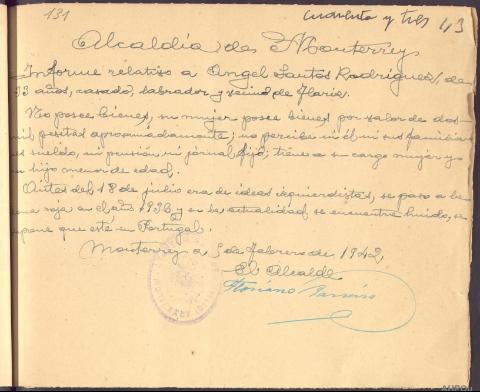 131
Cuarenta y tres 43
Alcaldía de Monterrey
Informe relativo a Angel Santos Rodriguez, de
33 años, casado, labrador y vecino de Flariz.
No posee bienes, su mujer posee bienes por valor de dos-
mil pesetas aproximadamente; no percibe ni él ni sus familia
es sueldo, ni pensión, ni jornal fijo; tiene a su cargo mujer y
n hijo menor de edad.
Antes del 18 de julio era de ideas izquierdistas, se paso a la
ona roja en el año 1936 y en la actualidad, se encuentra huido, se
pone que esté en Portugal.
Monterrey a 5 de febrero de 1942,
El Alcalde
Floriano